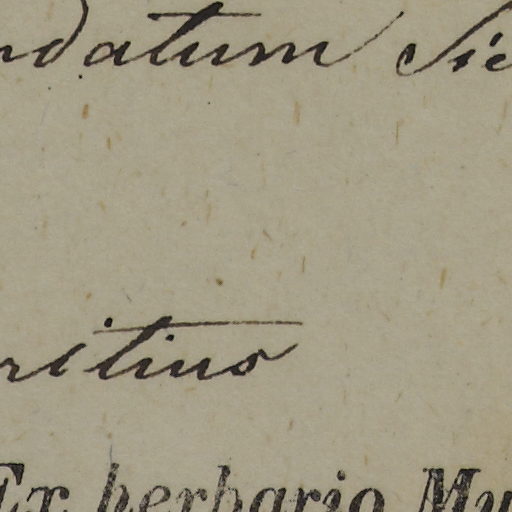 ndatum Sie
ritius
Ex herbario Mu